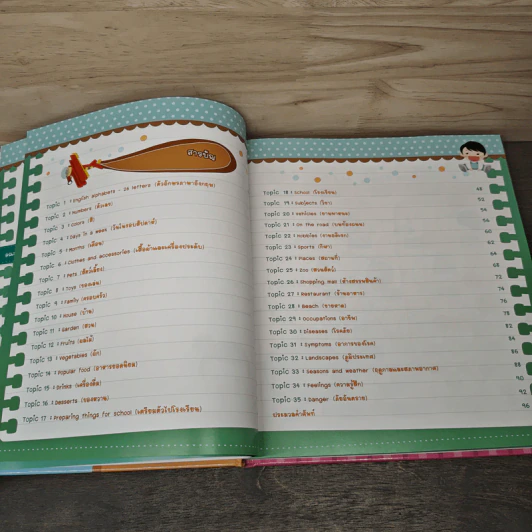 สารบัญ
Topic 1 : English alphabets - 26 letters (ตัวอักษรภาษาอังกฤษ)
Topic 2 : Numbers (ตัวเลข)
Topic 3 : Colors (สี)
Topic 4 : Days in a week (วันในรอบสัปดาห์)
Topic 5 : Months (เดือน)
Topic 6 : Clothes and accessories (เสื้อผ้าและเครื่องประดับ)
Topic 7 : Pets (สัตว์เลี้ยง)
Topic 8 : Toys (ของเล่น)
Topic 9 : Family (ครอบครัว)
Topic 10 : House (บ้าน)
Topic 11 : Garden (สวน)
Topic 12 : Fruits (ผลไม้)
Topic 13 : Vegetables (ผัก)
Topic 14 : Popular food (อาหารยอดนิยม)
Topic 15 : Drinks (เครื่องดื่ม)
Topic 16 : Desserts (ของหวาน)
Topic 17 : Preparing things for school (เตรียมตัวไปโรงเรียน)
Topic 18 : School (โรงเรียน) 48
Topic 19 : Subjects (วิชา)
Topic 20 : Vehicles (ยานพาหนะ)
Topic 21 : On the road (บนท้องถนน)
Topic 22 : Hobbies (งานอดิเรก)
Topic 23 : Sports (กีฬา)
Topic 24 : Places (สถานที่)
Topic 25 : Zoo (สวนสัตว์) 68
Topic 26 : Shopping mall (ห้างสรรพสินค้า) 72
Topic 27 : Restaurant (ร้านอาหาร) 74
Topic 28 : Beach (ชายหาด) 76
Topic 29 : Occupations (อาชีพ) 78
Topic 30 : Diseases (โรคภัย) 82
Topic 31 : Symptoms (อาการของโรค) 84
Topic 32 : Landscapes (ภูมิประเทศ) 86
Topic 33 : Seasons and weather (ฤดูกาลและสภาพอากาศ) 88
Topic 34 : Feelings (ความรู้สึก) 90
Topic 35 : Danger (ภัยอันตราย) 92
ประมวลคำศัพท์ 96